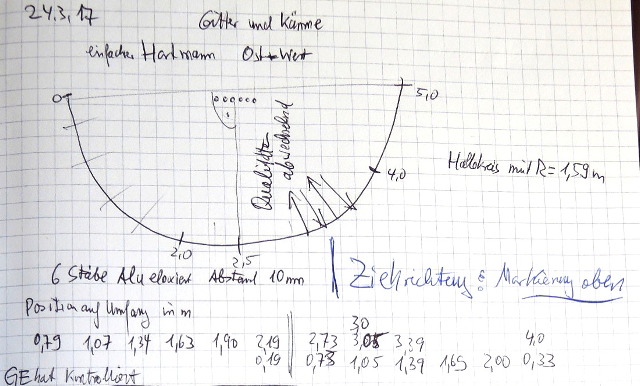 24.3.17 Gitter und Kämme
einfacher Hartmann Ost-West
0 5,0
Qualitäten
abwechselnd
4,0
Halbkreis mit R=1,59 m
2,0
2,5
6 Stäbe Alu eloxiert Abstand 10 mm
Ziehrichtung: Markierung oben
Position auf Umfang in m
30
0,79 1,07 1,34 1,63 1,90 2,19 2,73 3,05 3,39 4,0
0,19 0,73 1,05 1,39 1,69 2,00 0,33
GE hat kontrolliert